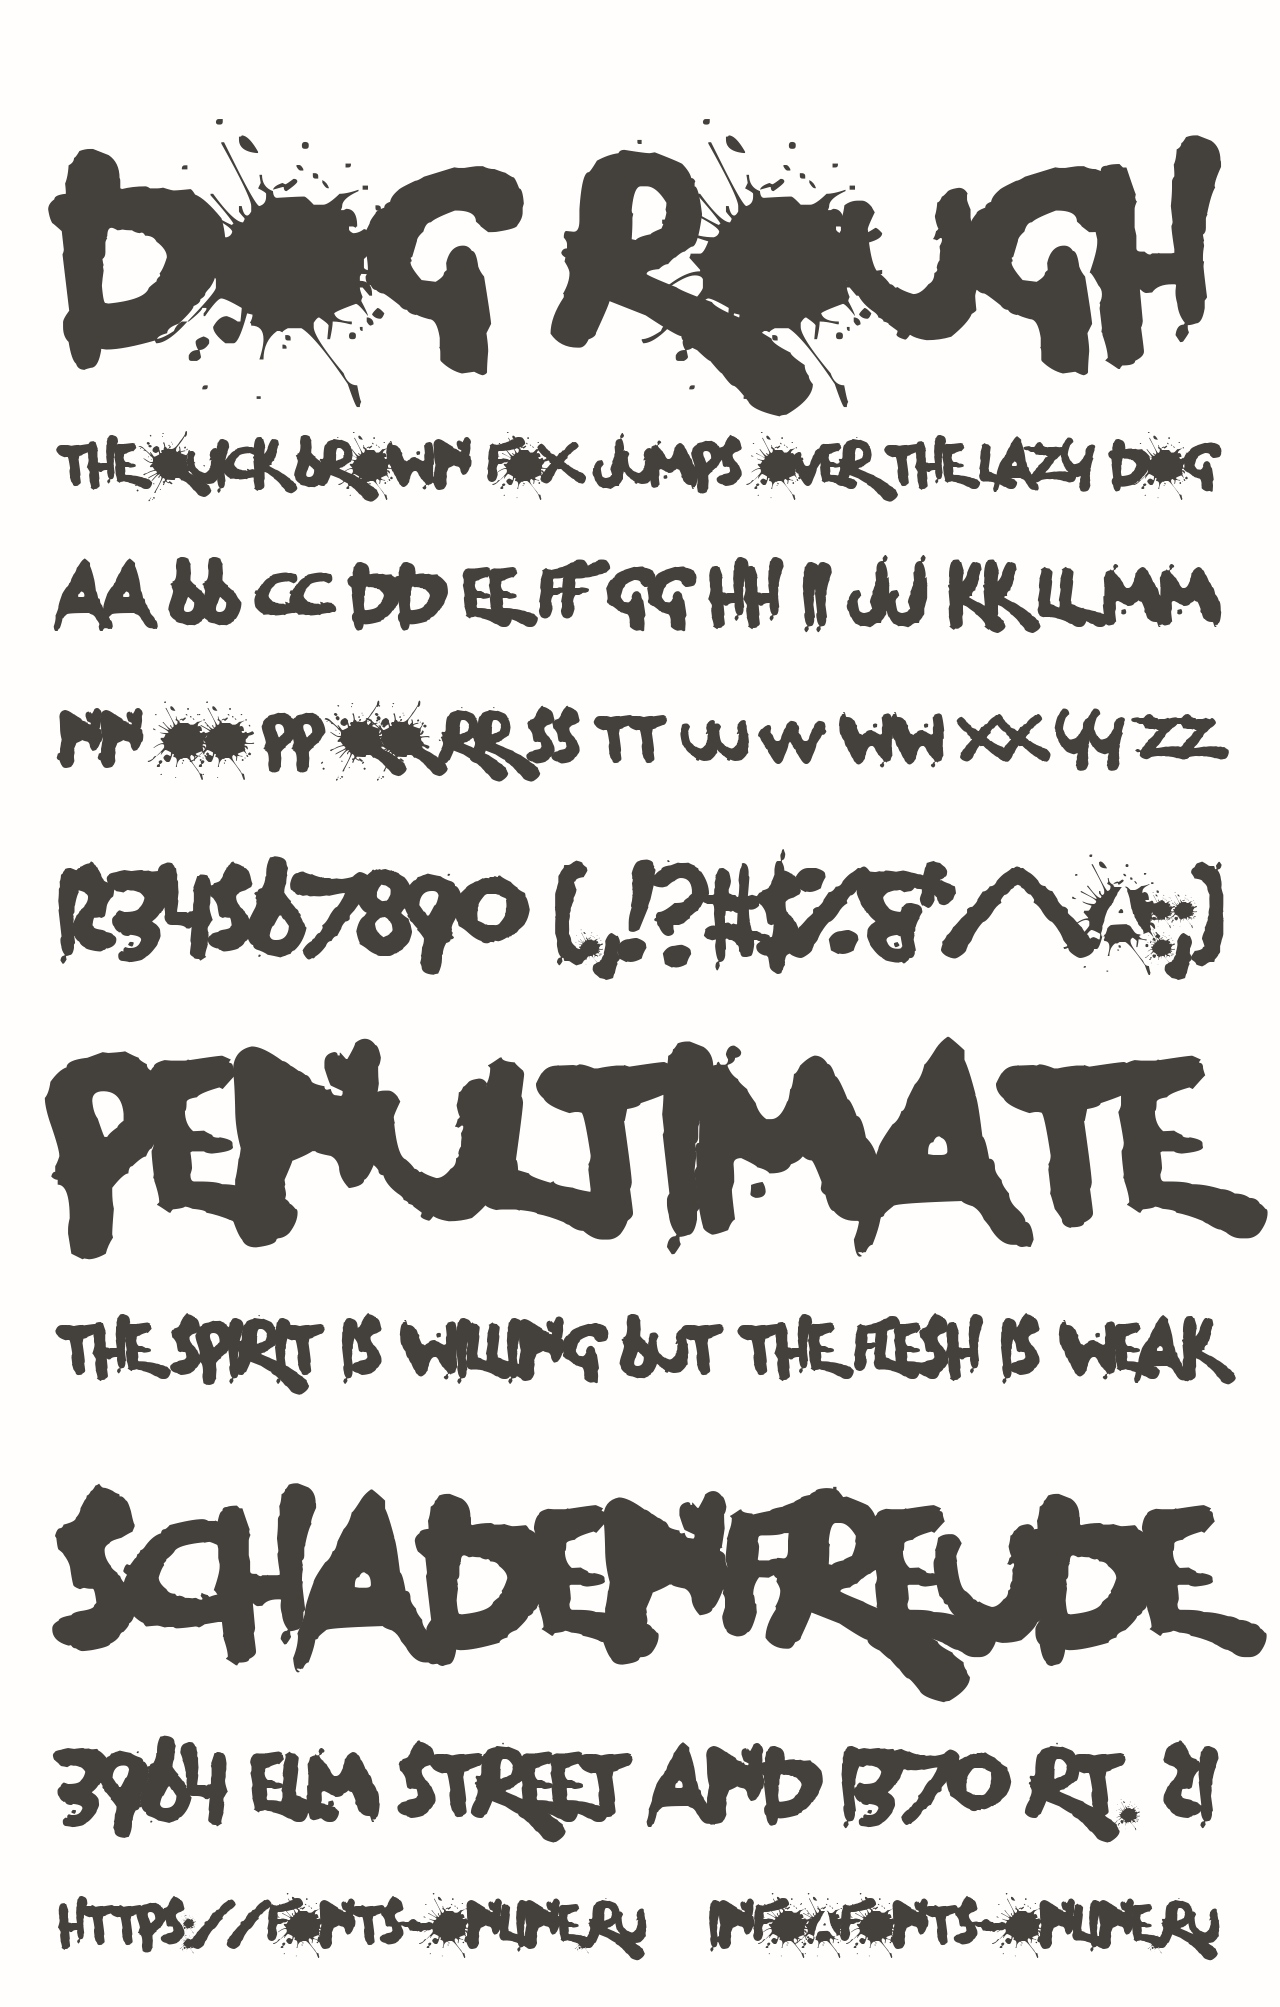 DOG ROUGH
THE QUICK BROWN FOX JUMPS OVER THE LAZY DOG
AA bb CC DD EE FF GG HH II JJ KK LL MM
NN OO PP QQ RR SS TT UU VV WW XX YY ZZ
1234567890 (.,!?#$%&*^@:;)
PENULTIMATE
THE SPIRIT IS WILLING bUT THE FLESH IS WEAK
SCHADENFREUDE
3964 ELM STREET AND 1370 RT. 21
HTTPS://FONTS-ONLINE.RU INFO@FONTS-ONLINE.RU